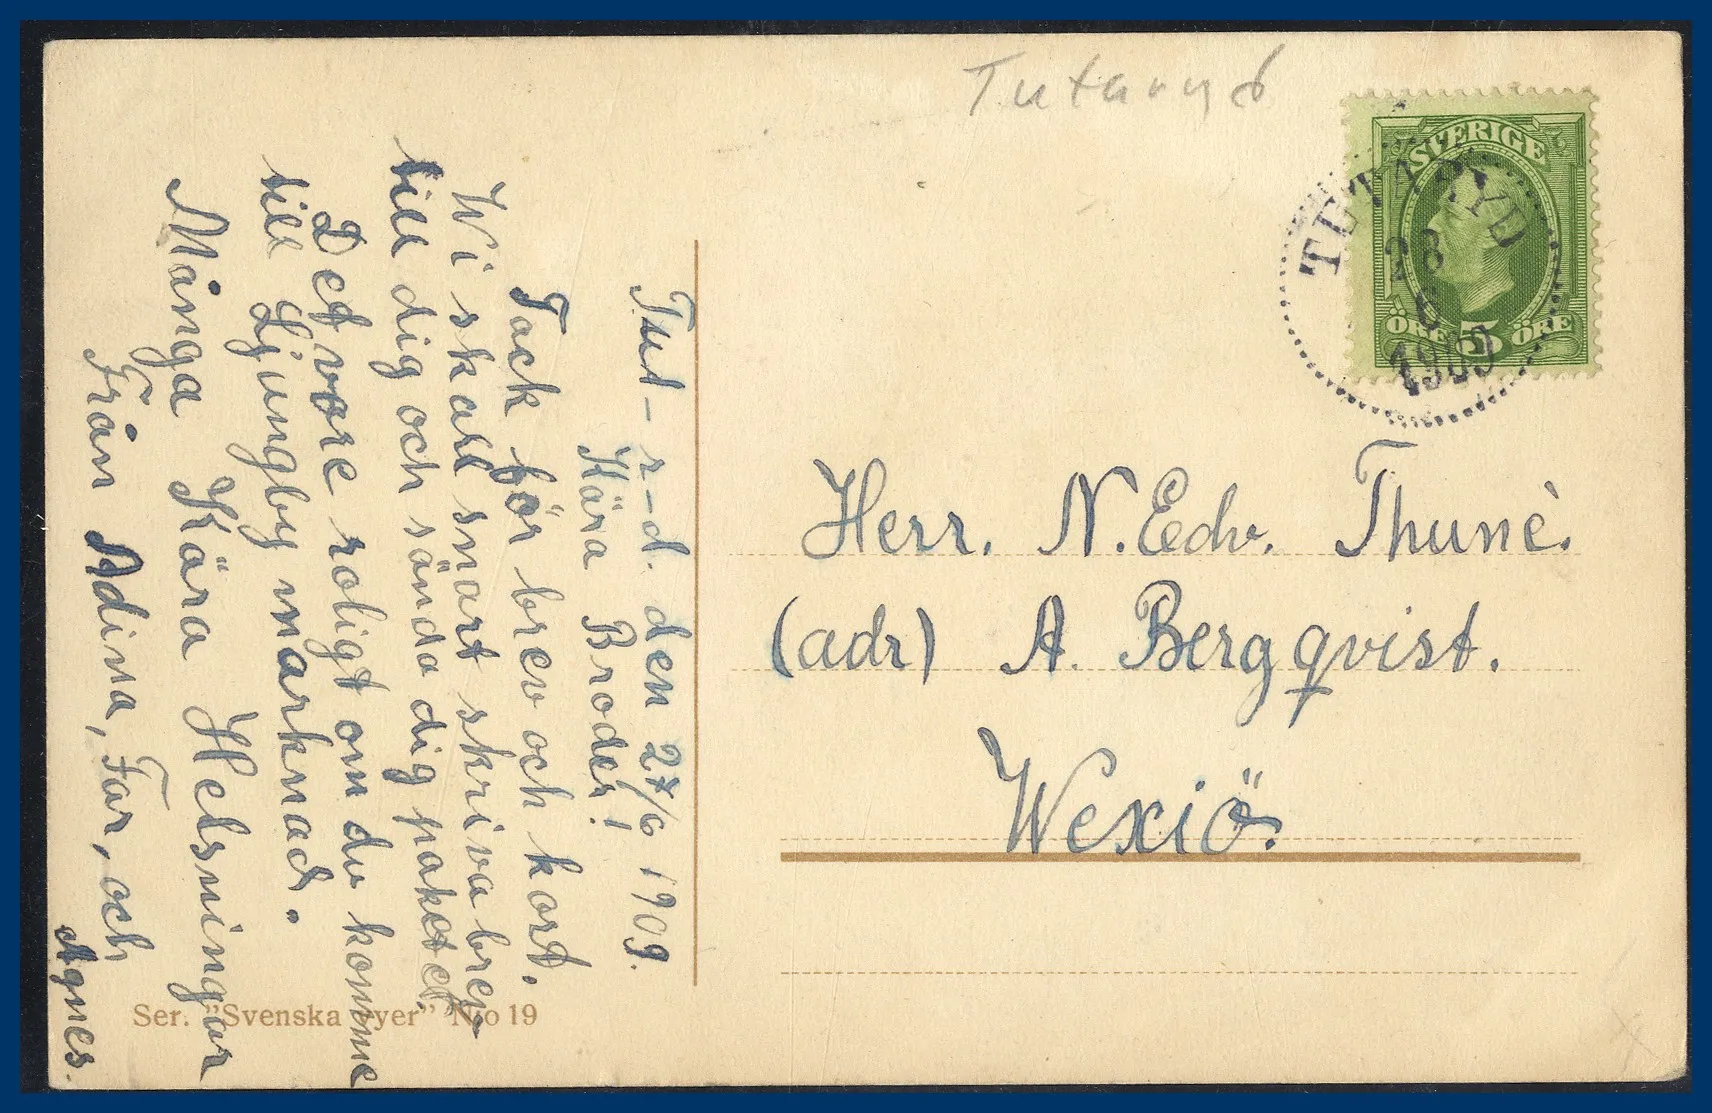 Tutaryd
SVERIGE
TUTARYD
28
6
1909
ÖRE 5 ÖRE
Tut-r-d. den 27/6 1909.
Kära Broder!
Tack för brev och kort.
Wi skall snart skriva brev
till dig och sända dig paketet.
Det vore roligt om du komme
till Ljungby marknad.
Många Kära Helsningar
Från Adina, Far, och
Agnes.
Herr. N. Edv. Thuné.
(adr) A. Bergqvist.
Wexiö.
Ser. "Svenska vyer" No 19